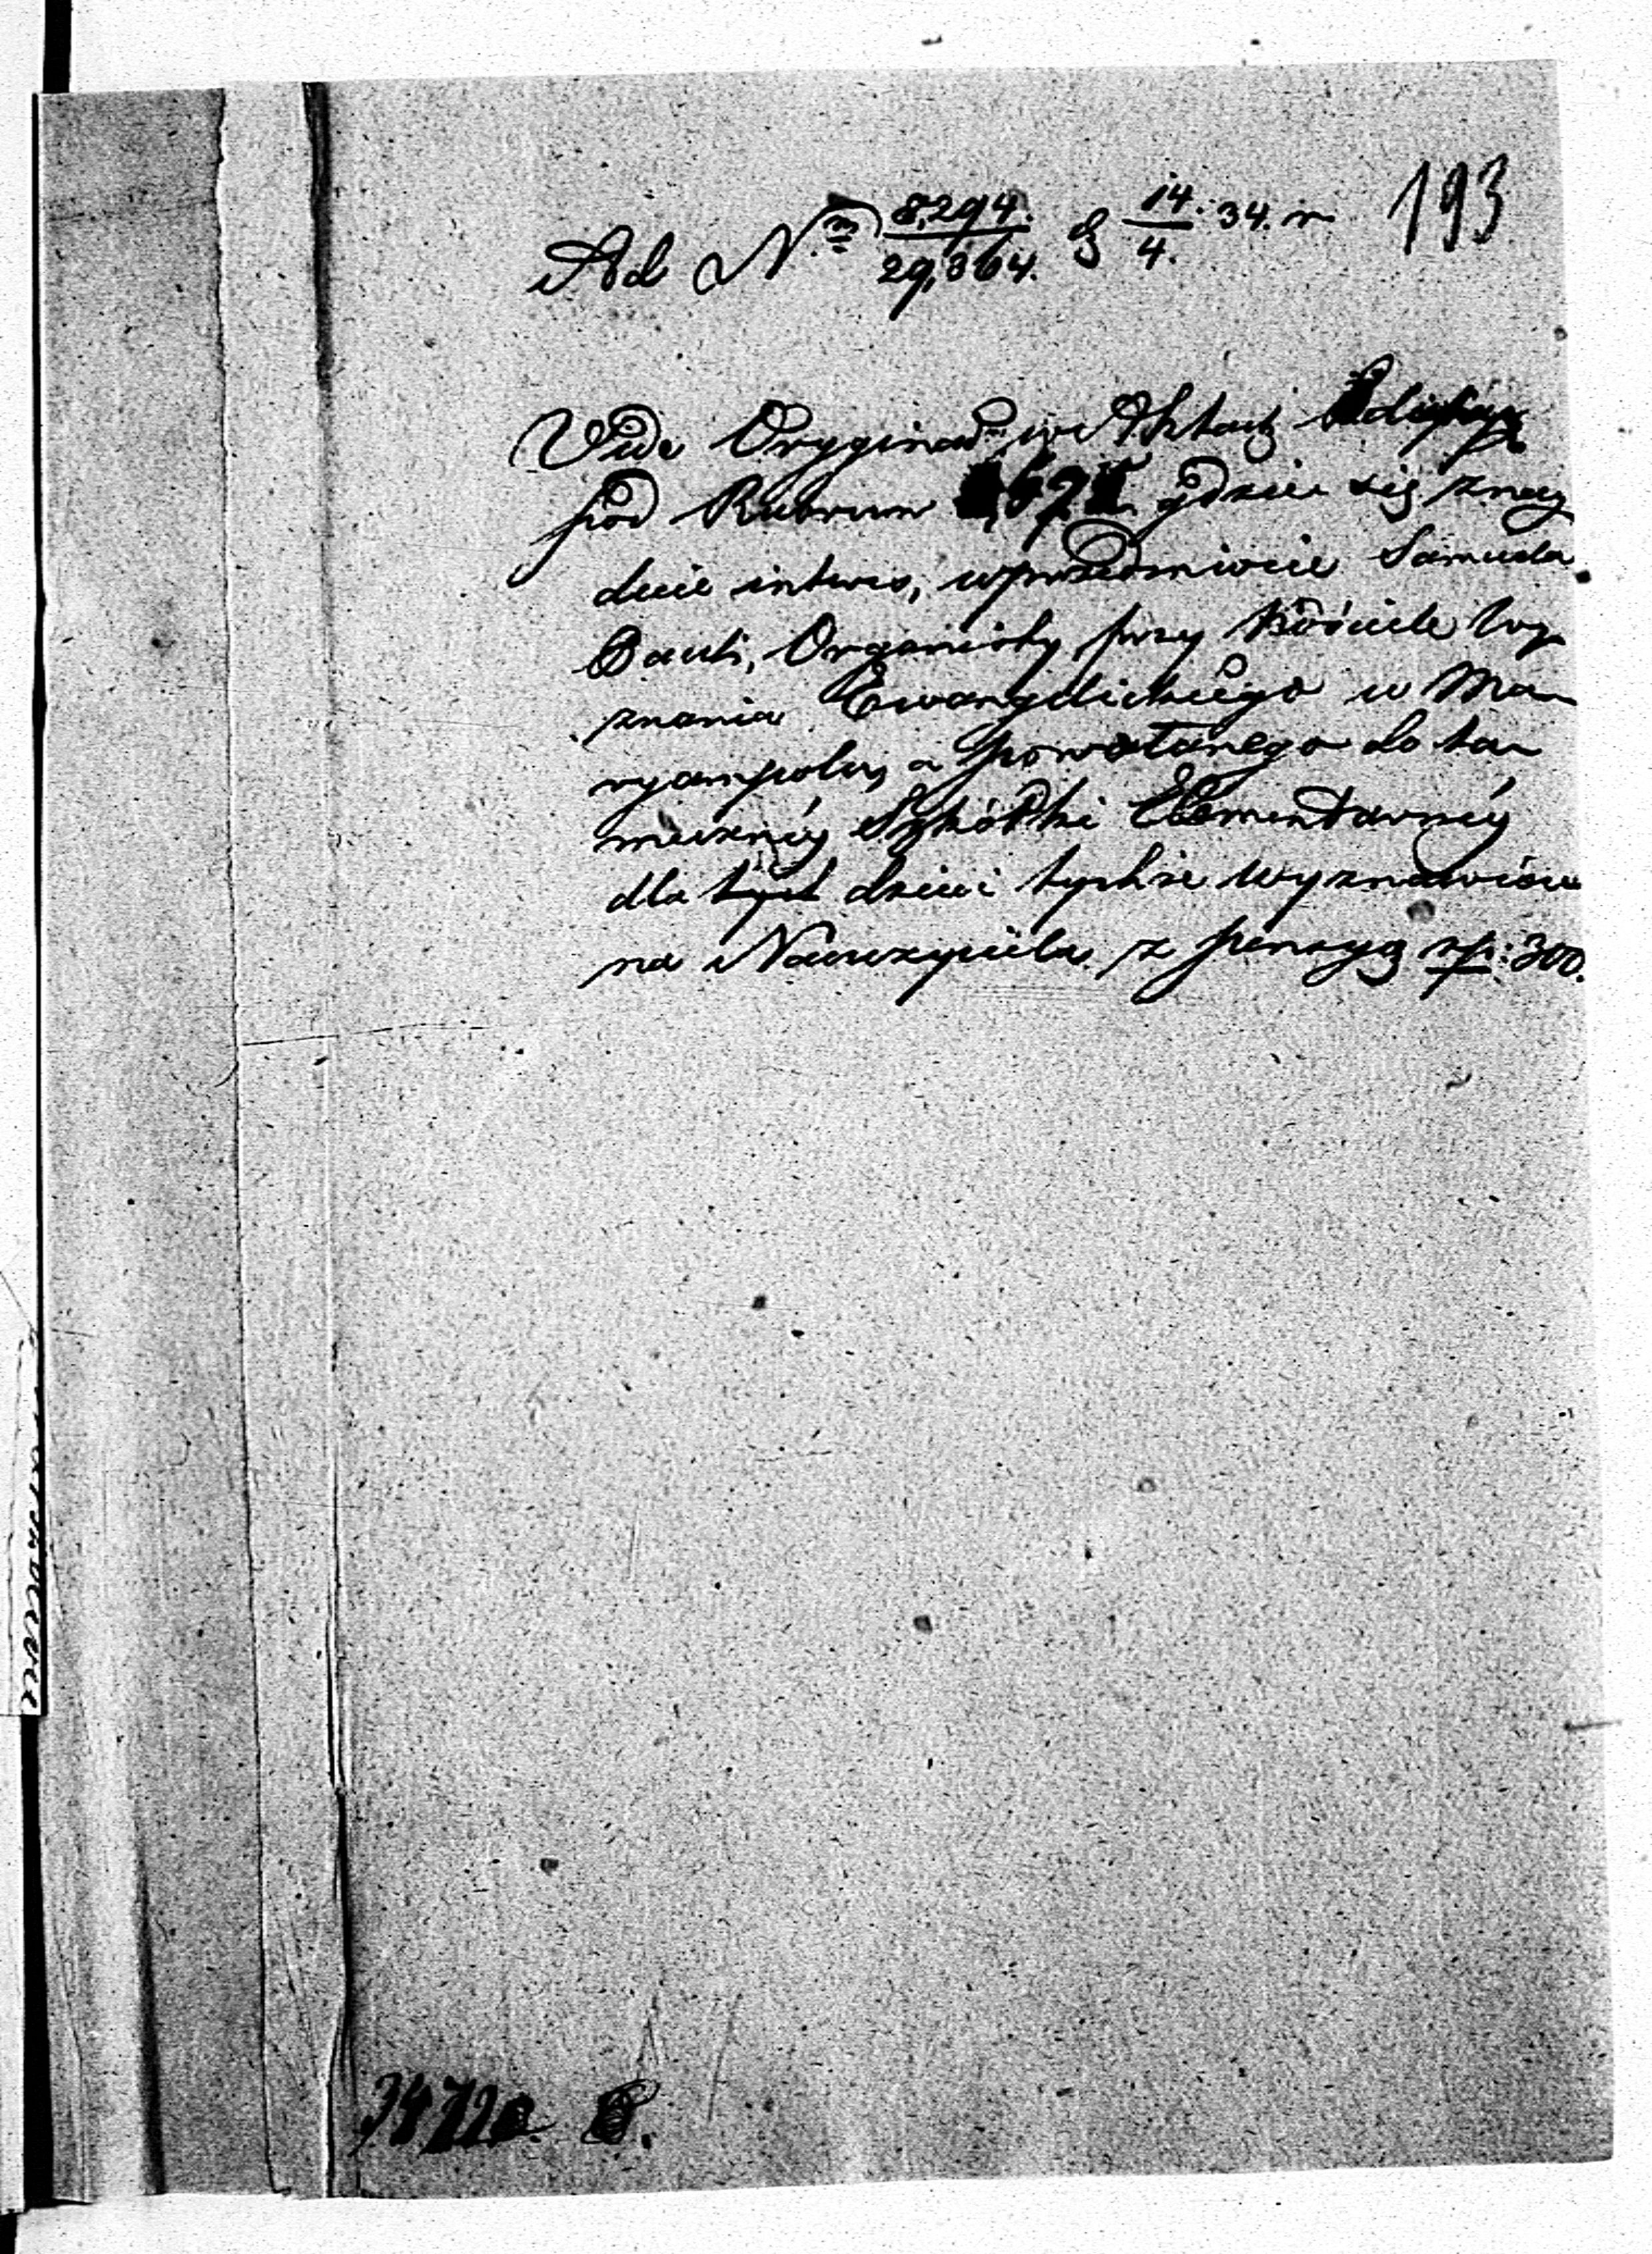 193
Ad N. 8,294. / 29,364. 14. / 4. 34. r
Vide Oryginał w Aktach
pod Rubrum gdzie się znay
duie intres, w przedmiocie Samuela
Organisty przy Kościele Wy
znania Ewangelickiego w Ma
ryampolu, a powołanego do ta
meczney Szkółki Elementarnéy
dla tych dzieci tychże wyznawców
na Nauczyciela z pensyą zp: 300.